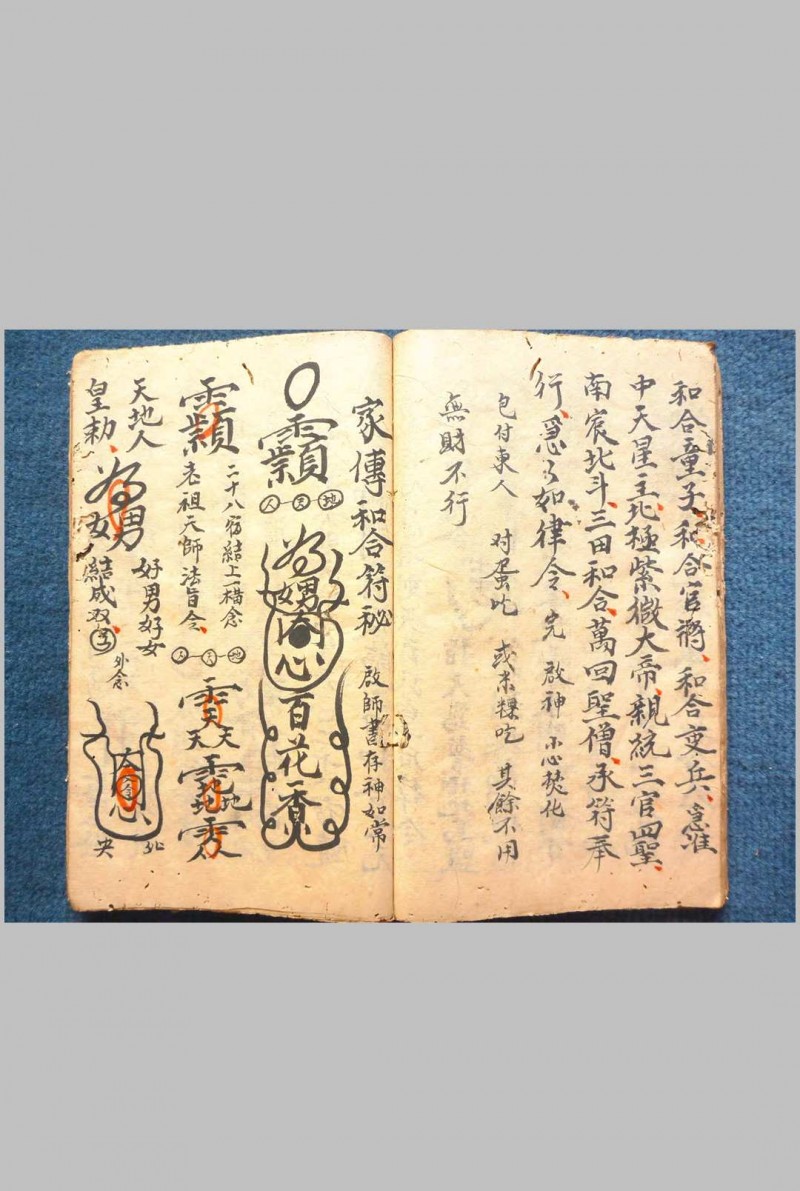 和合童子、和合官將、和合吏兵、急准
中天星主、北極紫微大帝、親統三官四聖、
南宸北斗、三田和合、萬回聖僧、承符奉
行、急々如律令、完 啟神 小心焚化
包付東人 对蛋吃 或末粿吃 其餘不用
無財不行
家傳和合符秘 啟師書存神如常
人 天 地
男
心
百花香
二十八宿結上一楷念
老祖天師法旨令、
人 天 地
天天
地地
天地人 好男好女
皇勅、 男 結成双 外念
合 心
央